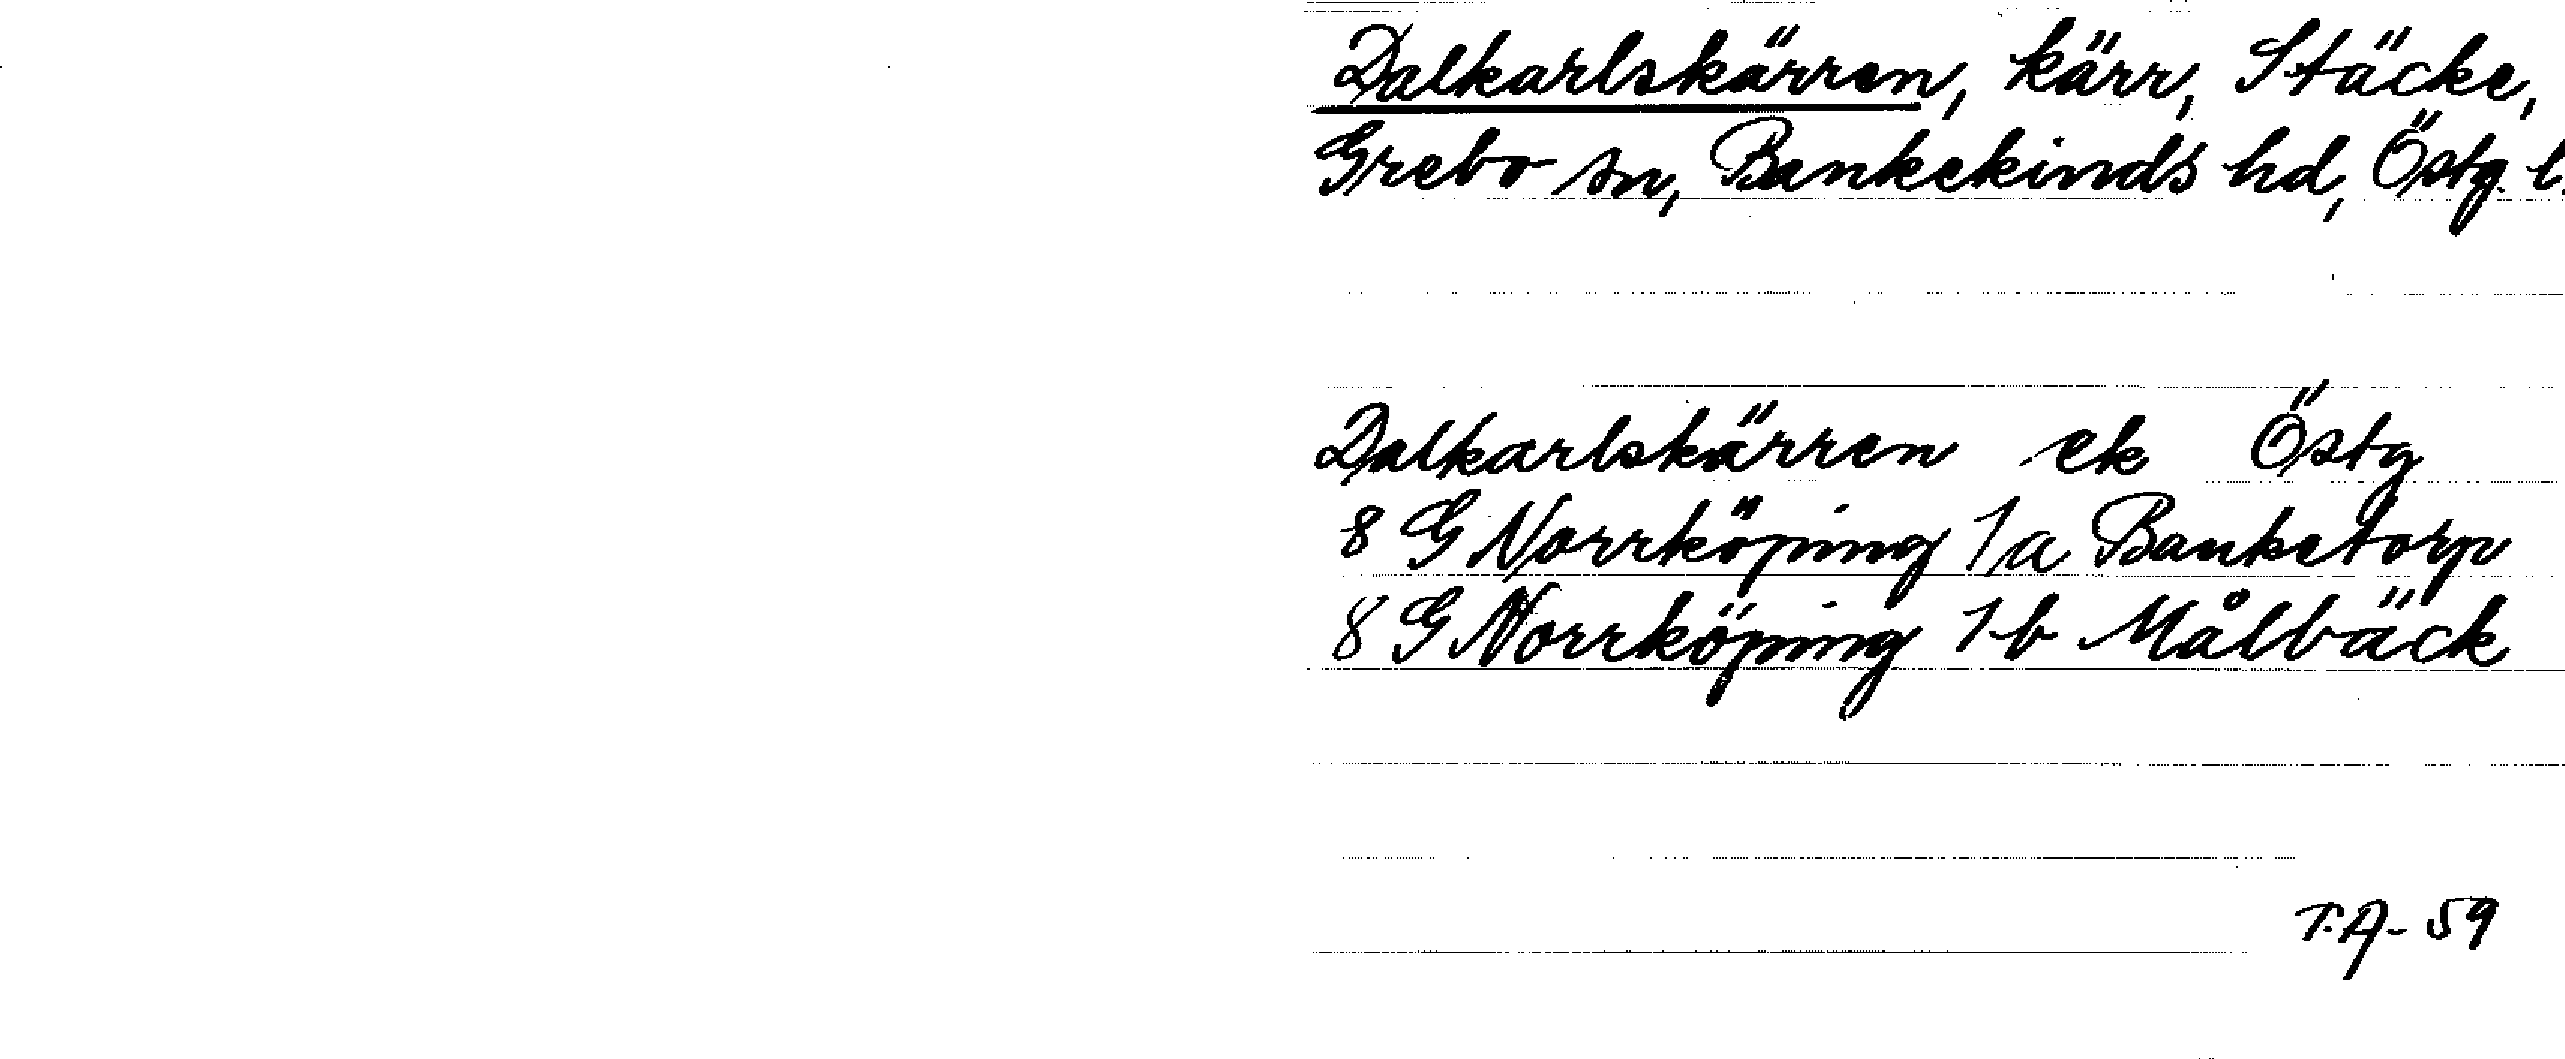 Dalkarlskärren, kärr, Stäcke,
Grebo sn, Bankekinds hd, Östg. l.
Dalkarlskärren ek Östg
8 G Norrköping 1a Banketorp
8 G Norrköping 1b Målbäck
T.A-59